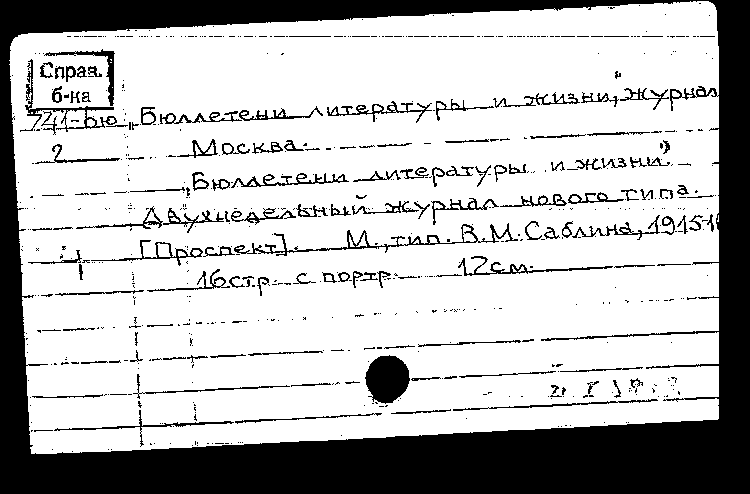 Справ.
б-ка
741-бю „Бюллетени литературы и жизни,“ журнал
2 Москва.
„Бюллетени литературы и жизни“.
Двухнедельный журнал нового типа.
[Проспект]. М., тип. В.М. Саблина, 1915-
16 стр. с портр. 17 см.